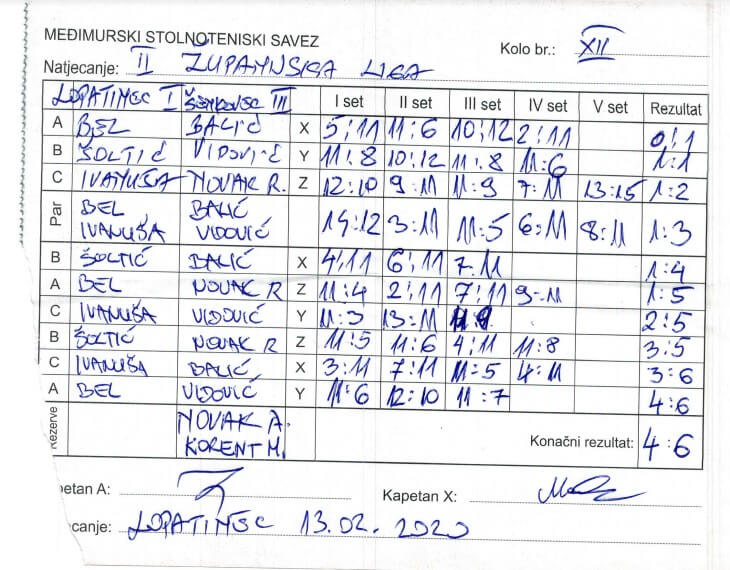 MEĐIMURSKI STOLNOTENISKI SAVEZ
Kolo br.: XII
Natjecanje: II ŽUPANIJSKA LIGA
LOPATINEC I ŠENKOVEC III I set II set III set IV set V set Rezultat
A BEL BALIĆ X 5:11 11:6 10:12 2:11 0:1
B ŠOLTIĆ VIDOVIĆ Y 11:8 10:12 11:8 11:6 1:1
C IVANUŠA NOVAK R. Z 12:10 9:11 11:9 7:11 13:15 1:2
Par BEL BALIĆ
IVANUŠA VIDOVIĆ 14:12 3:11 11:5 6:11 8:11 1:3
B ŠOLTIĆ BALIĆ X 4:11 6:11 7:11 1:4
A BEL NOVAK R Z 11:4 2:11 7:11 9:11 1:5
C IVANUŠA VIDOVIĆ Y 11:3 13:11 2:5
B ŠOLTIĆ NOVAK R Z 11:5 11:6 4:11 11:8 3:5
C IVANUŠA BALIĆ X 3:11 7:11 11:5 4:11 3:6
A BEL VIDOVIĆ Y 11:6 12:10 11:7 4:6
Rezerve NOVAK A.
KORENT M. Konačni rezultat: 4:6
petan A: Kapetan X:
canje: LOPATINEC 13.02.2020